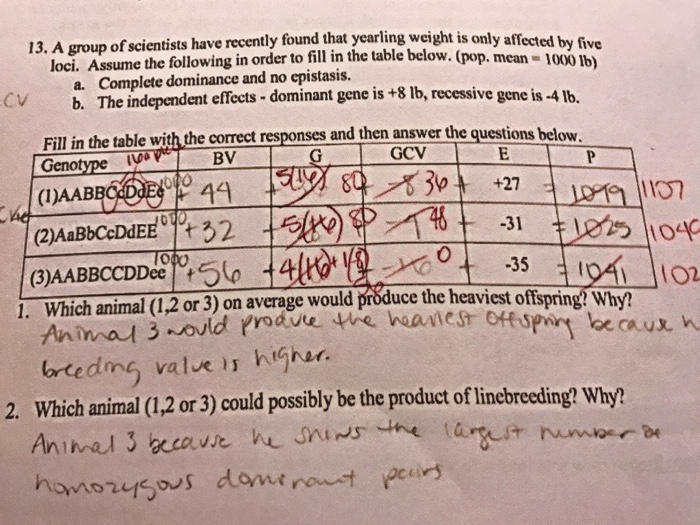 13. A group of scientists have recently found that yearling weight is only affected by five
loci. Assume the following in order to fill in the table below. (pop. mean = 1000 lb)
a. Complete dominance and no epistasis.
CV
b. The independent effects - dominant gene is +8 lb, recessive gene is -4 lb.
Fill in the table with the correct responses and then answer the questions below.
Genotype BV G GCV E P
(1)AABBCcDdEe 1000 + 44 +5(16) 80 36 + +27 = 1099 1107
(2)AaBbCcDdEE 1000 +32 +5(+6) 80 48 -31 = 1025
(3)AABBCCDDee 1000 +56 0 + -35 = 1041
1. Which animal (1,2 or 3) on average would produce the heaviest offspring? Why?
Animal 3 would produce the heaviest offspring because
breeding value is higher.
2. Which animal (1,2 or 3) could possibly be the product of linebreeding? Why?
Animal 3 because he shows the largest number
homozygous dominant pairs